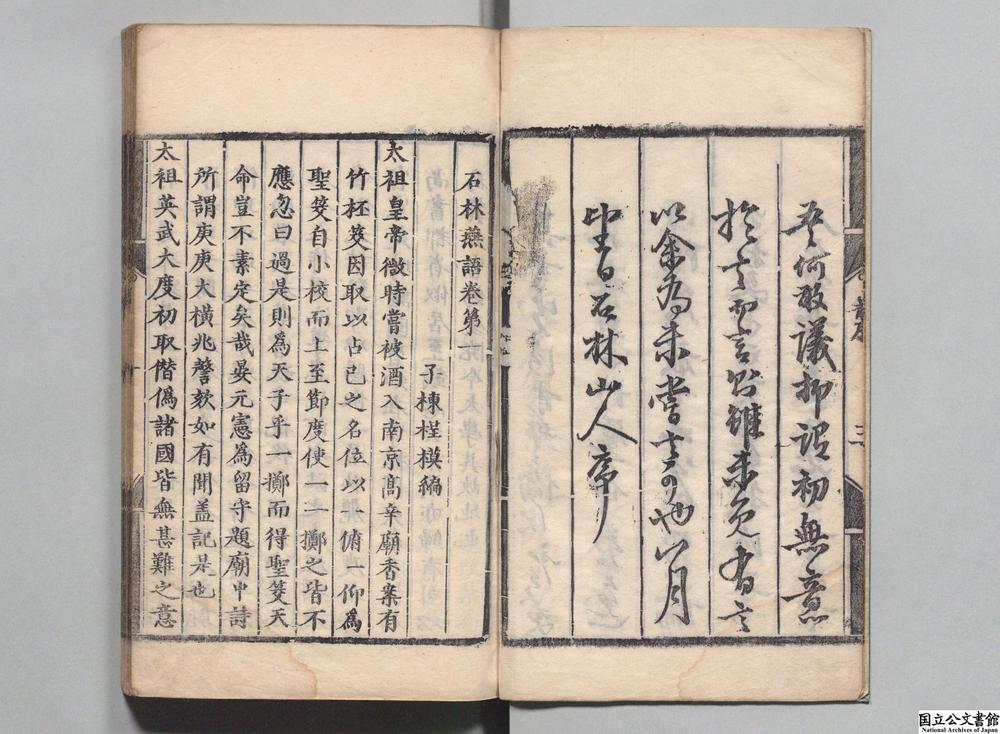 吾何敢議抑謂初無意
於言而言則雖未免有言
以余為未嘗言可也八月
望日石林山人序
三
石林燕語卷第一
子棟桯模編
太祖皇帝微時嘗被酒入南京髙辛廟香案有
竹柸筊因取以占已之名位以一俯一仰爲
聖筊自小校而上至節度使一一擲之皆不
應忽曰過是則爲天子乎一擲而得聖筊天
命豈不素定矣哉晏元憲爲留守題廟中詩
所謂庚庚大橫兆謦欬如有聞盖記是也
太祖英武大度初取僭僞諸國皆無甚難之意
国立公文書館
National Archives of Japan